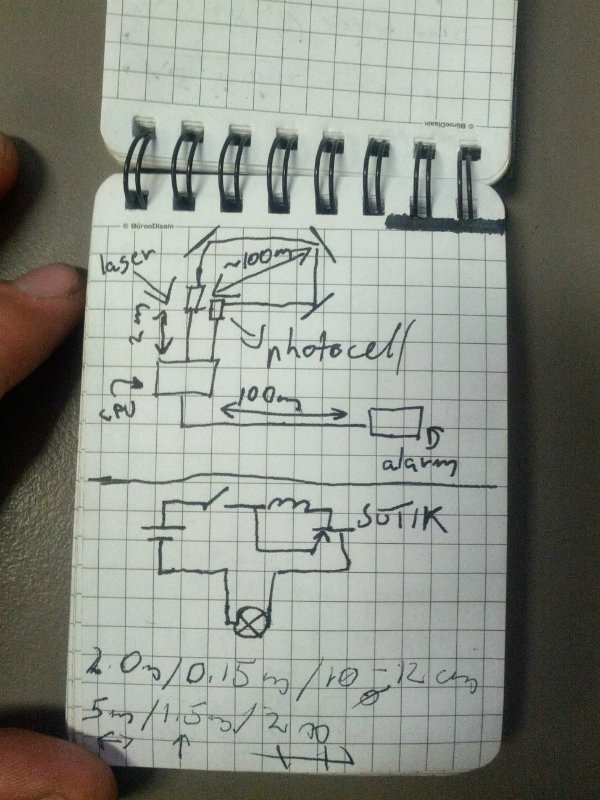 © BürooDisain
© BürooDisain
laser
~100m
2m
photocell
CPU
100m
alarm
SÜTIK
2.0m/0.15m/10-12 cm
5m/1.5m/2